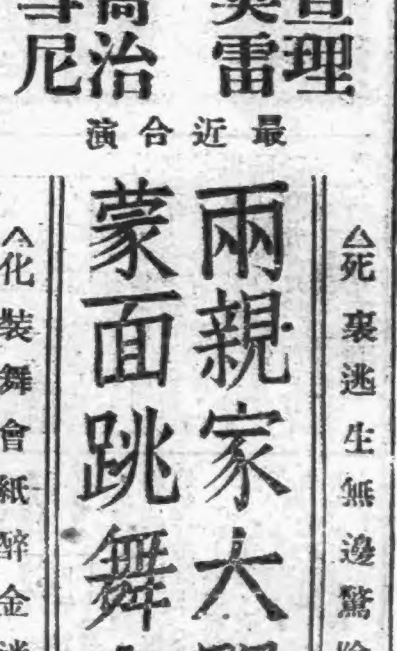 查理
雷
喬治
尼
最近合演
△死裏逃生無邊驚險
兩親家大
蒙面跳舞
△化裝舞會紙醉金迷